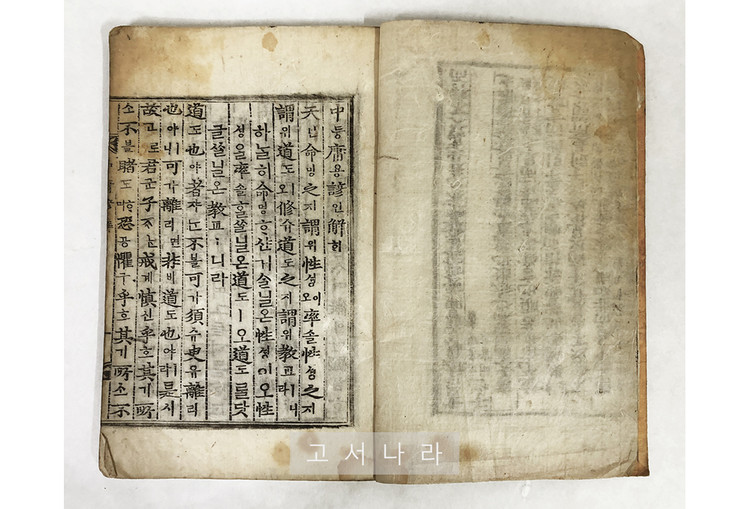 中듕庸용諺언解ᄒᆡ
天텬命명之지謂위性셩이오率솔性셩之지
謂위道도ㅣ오修슈道도之지謂위教교ㅣ니라
하ᄂᆞᆯ히命명ᄒᆞ샨거슬닐온性셩이오性
셩을率솔ᄒᆞᆯᄊᆞᆯ닐온道도ㅣ오道도ᄅᆞᆯ닷
글ᄊᆞᆯ닐온教교ㅣ니라
道도也야者쟈ᄂᆞᆫ不블可가須슈臾유離리
也야ㅣ니可가離리면非비道도也야ㅣ라是시
故고로君군子ᄌᆞᄂᆞᆫ戒계慎신乎호其기所
소不블睹도ᄒᆞ며恐공懼구乎호其기所소不
고서나라